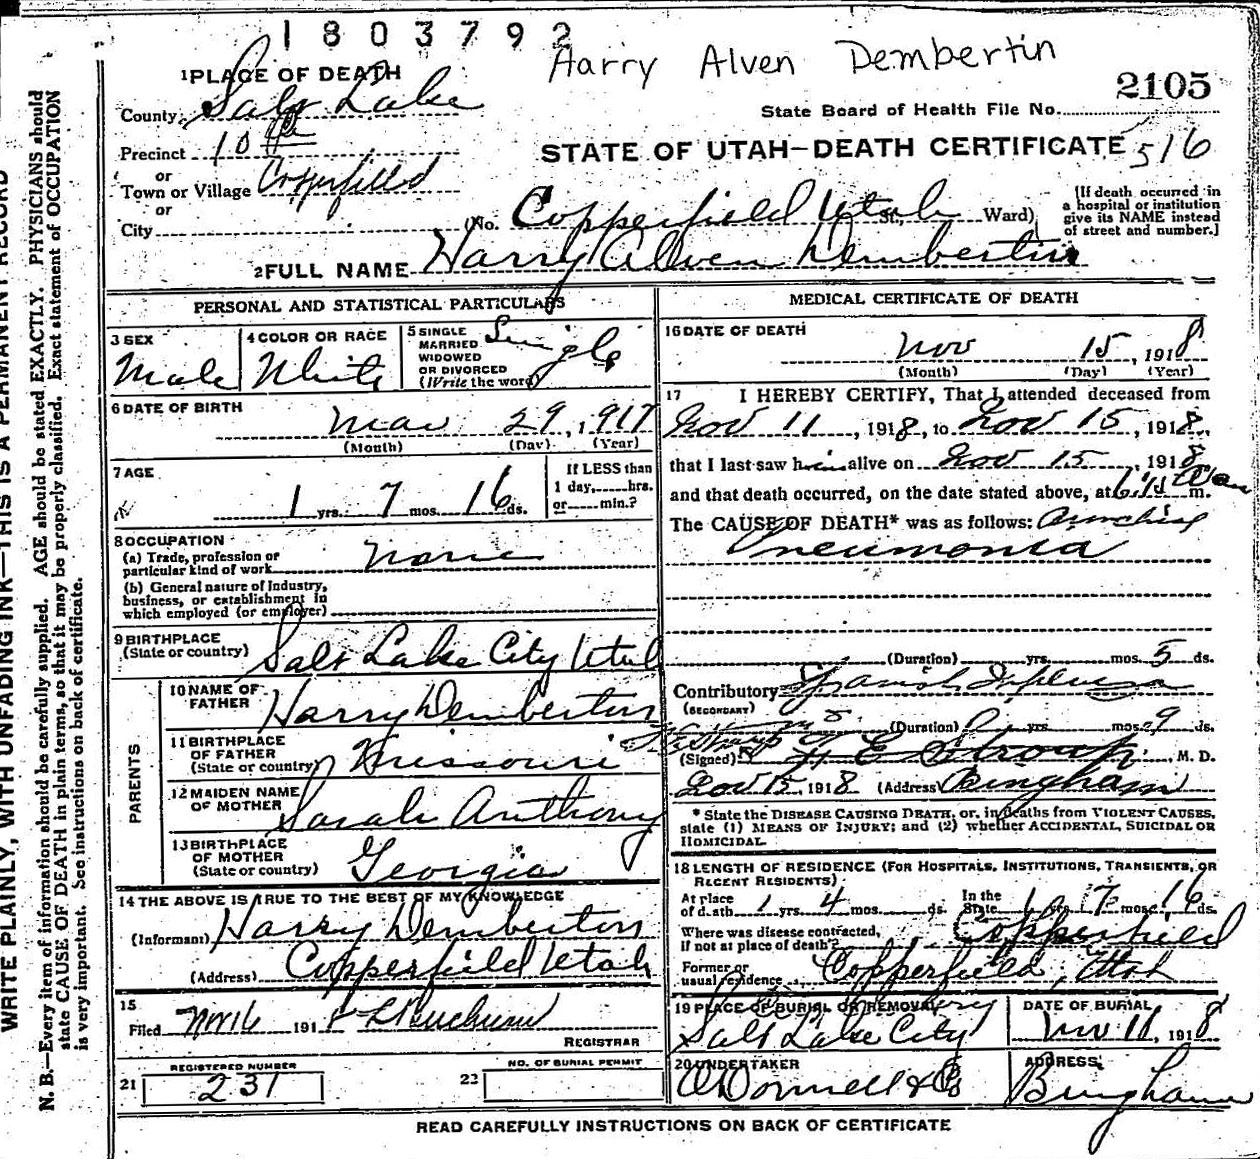 1803792
Harry Alven Dembertin
2105
1 PLACE OF DEATH
County Salt Lake
State Board of Health File No.
Precinct 10th
STATE OF UTAH—DEATH CERTIFICATE 516
or
Town or Village Copperfield
or
City
(No. Copperfield Utah St., Ward)
[If death occurred in a hospital or institution give its NAME instead of street and number.]
2 FULL NAME Harry Alven Dembertin
PERSONAL AND STATISTICAL PARTICULARS
3 SEX Male
4 COLOR OR RACE White
5 SINGLE MARRIED WIDOWED OR DIVORCED (Write the word) Single
6 DATE OF BIRTH Mar 29, 1917
(Month) (Day) (Year)
7 AGE 1 yrs. 7 mos. 16 ds.
If LESS than 1 day, hrs. or min.?
8 OCCUPATION
(a) Trade, profession or particular kind of work None
(b) General nature of Industry, business, or establishment in which employed (or employer)
9 BIRTHPLACE (State or country) Salt Lake City Utah
PARENTS
10 NAME OF FATHER Harry Dembertin
11 BIRTHPLACE OF FATHER (State or country) Missouri
12 MAIDEN NAME OF MOTHER Sarah Anthony
13 BIRTHPLACE OF MOTHER (State or country) Georgia
14 THE ABOVE IS TRUE TO THE BEST OF MY KNOWLEDGE
(Informant) Harry Dembertin
(Address) Copperfield Utah
15
Filed Nov 16 191
REGISTRAR
REGISTERED NUMBER
21 231
NO. OF BURIAL PERMIT
22
MEDICAL CERTIFICATE OF DEATH
16 DATE OF DEATH
Nov 15, 1918
(Month) (Day) (Year)
17 I HEREBY CERTIFY, That I attended deceased from
Nov 11, 1918, to Nov 15, 1918,
that I last saw him alive on Nov 15, 1918
and that death occurred, on the date stated above, at m.
The CAUSE OF DEATH* was as follows:
Pneumonia
(Duration) yrs. mos. 5 ds.
Contributory (SECONDARY) Spanish Influenza
(Duration) 0 yrs. mos. 9 ds.
(Signed) H E Stroup, M. D.
Nov 15, 1918 (Address) Bingham
* State the DISEASE CAUSING DEATH, or, in deaths from VIOLENT CAUSES, state (1) MEANS OF INJURY; and (2) whether ACCIDENTAL, SUICIDAL OR HOMICIDAL.
18 LENGTH OF RESIDENCE (FOR HOSPITALS, INSTITUTIONS, TRANSIENTS, OR RECENT RESIDENTS)
At place of death 1 yrs. 4 mos. ds. In the State 1 yrs. 7 mos. 16 ds.
Where was disease contracted, if not at place of death? Copperfield
Former or usual residence Copperfield, Utah
19 PLACE OF BURIAL OR REMOVAL
Salt Lake City
DATE OF BURIAL
Nov, 1918
20 UNDERTAKER
O'Donnell & Co
ADDRESS
Bingham
READ CAREFULLY INSTRUCTIONS ON BACK OF CERTIFICATE
WRITE PLAINLY, WITH UNFADING INK—THIS IS A PERMANENT RECORD
N. B.—Every item of information should be carefully supplied. AGE should be stated EXACTLY. PHYSICIANS should
state CAUSE OF DEATH in plain terms, so that it may be properly classified. Exact statement of OCCUPATION
is very important. See instructions on back of certificate.